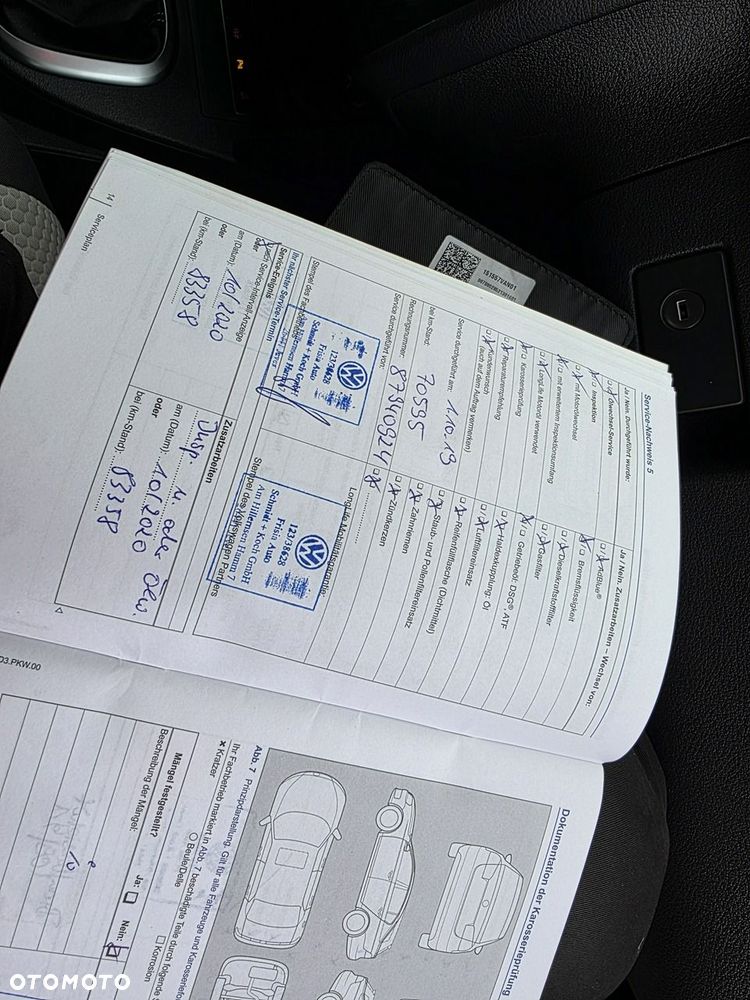 Service-Nachweis 5
Ja / Nein. Durchgeführt wurde:
Ölwechsel-Service
Inspektion
mit Motorölwechsel
mit erweitertem Inspektionsumfang
LongLife Motoröl verwendet
Karosserieprüfung
Reparaturempfehlung
Kundenwunsch
(auch auf dem Auftrag vermerken)
Service durchgeführt am: 1.10.19
bei km-Stand: 70595
Rechnungsnummer:
Service durchgeführt von:
Ja / Nein. Zusatzarbeiten – Wechsel von:
AdBlue®
Bremsflüssigkeit
Dieselkraftstofffilter
Gasfilter
Getriebeöl: DSG®, ATF
Haldexkupplung: Öl
Luftfiltereinsatz
Reifenfüllflasche (Dichtmittel)
Staub- und Pollenfiltereinsatz
Zahnriemen
Zündkerzen
LongLife Mobilitätsgarantie:
123/38628
Frisia Auto
Schmidt + Koch GmbH
Am Hillernsen Hamm 7
123/38628
Frisia Auto
Schmidt + Koch GmbH
Am Hillernsen Hamm 7
Stempel des Volkswagen Partners
Ihr nächster Service-Termin
Service-Ereignis
nach Service-Intervall-Anzeige
oder
am (Datum): 10/2020
oder
bei (km-Stand): 83358
Zusatzarbeiten
Insp. u. oder Ölw.
am (Datum): 10/2020
oder
bei (km-Stand): 83358
14 Serviceplan
03.PKW.00
Dokumentation der Karosserieprüfung
Abb. 7 Prinzipdarstellung. Gilt für alle Fahrzeuge und
Ihr Fachbetrieb markiert in Abb. 7 beschädigte Teile durch folgende
× Kratzer
○ Beule/Delle
□ Korrosion
Mängel festgestellt?
Ja:
Nein:
Beschreibung der Mängel:
1S1557VAN01
OTOMOTO